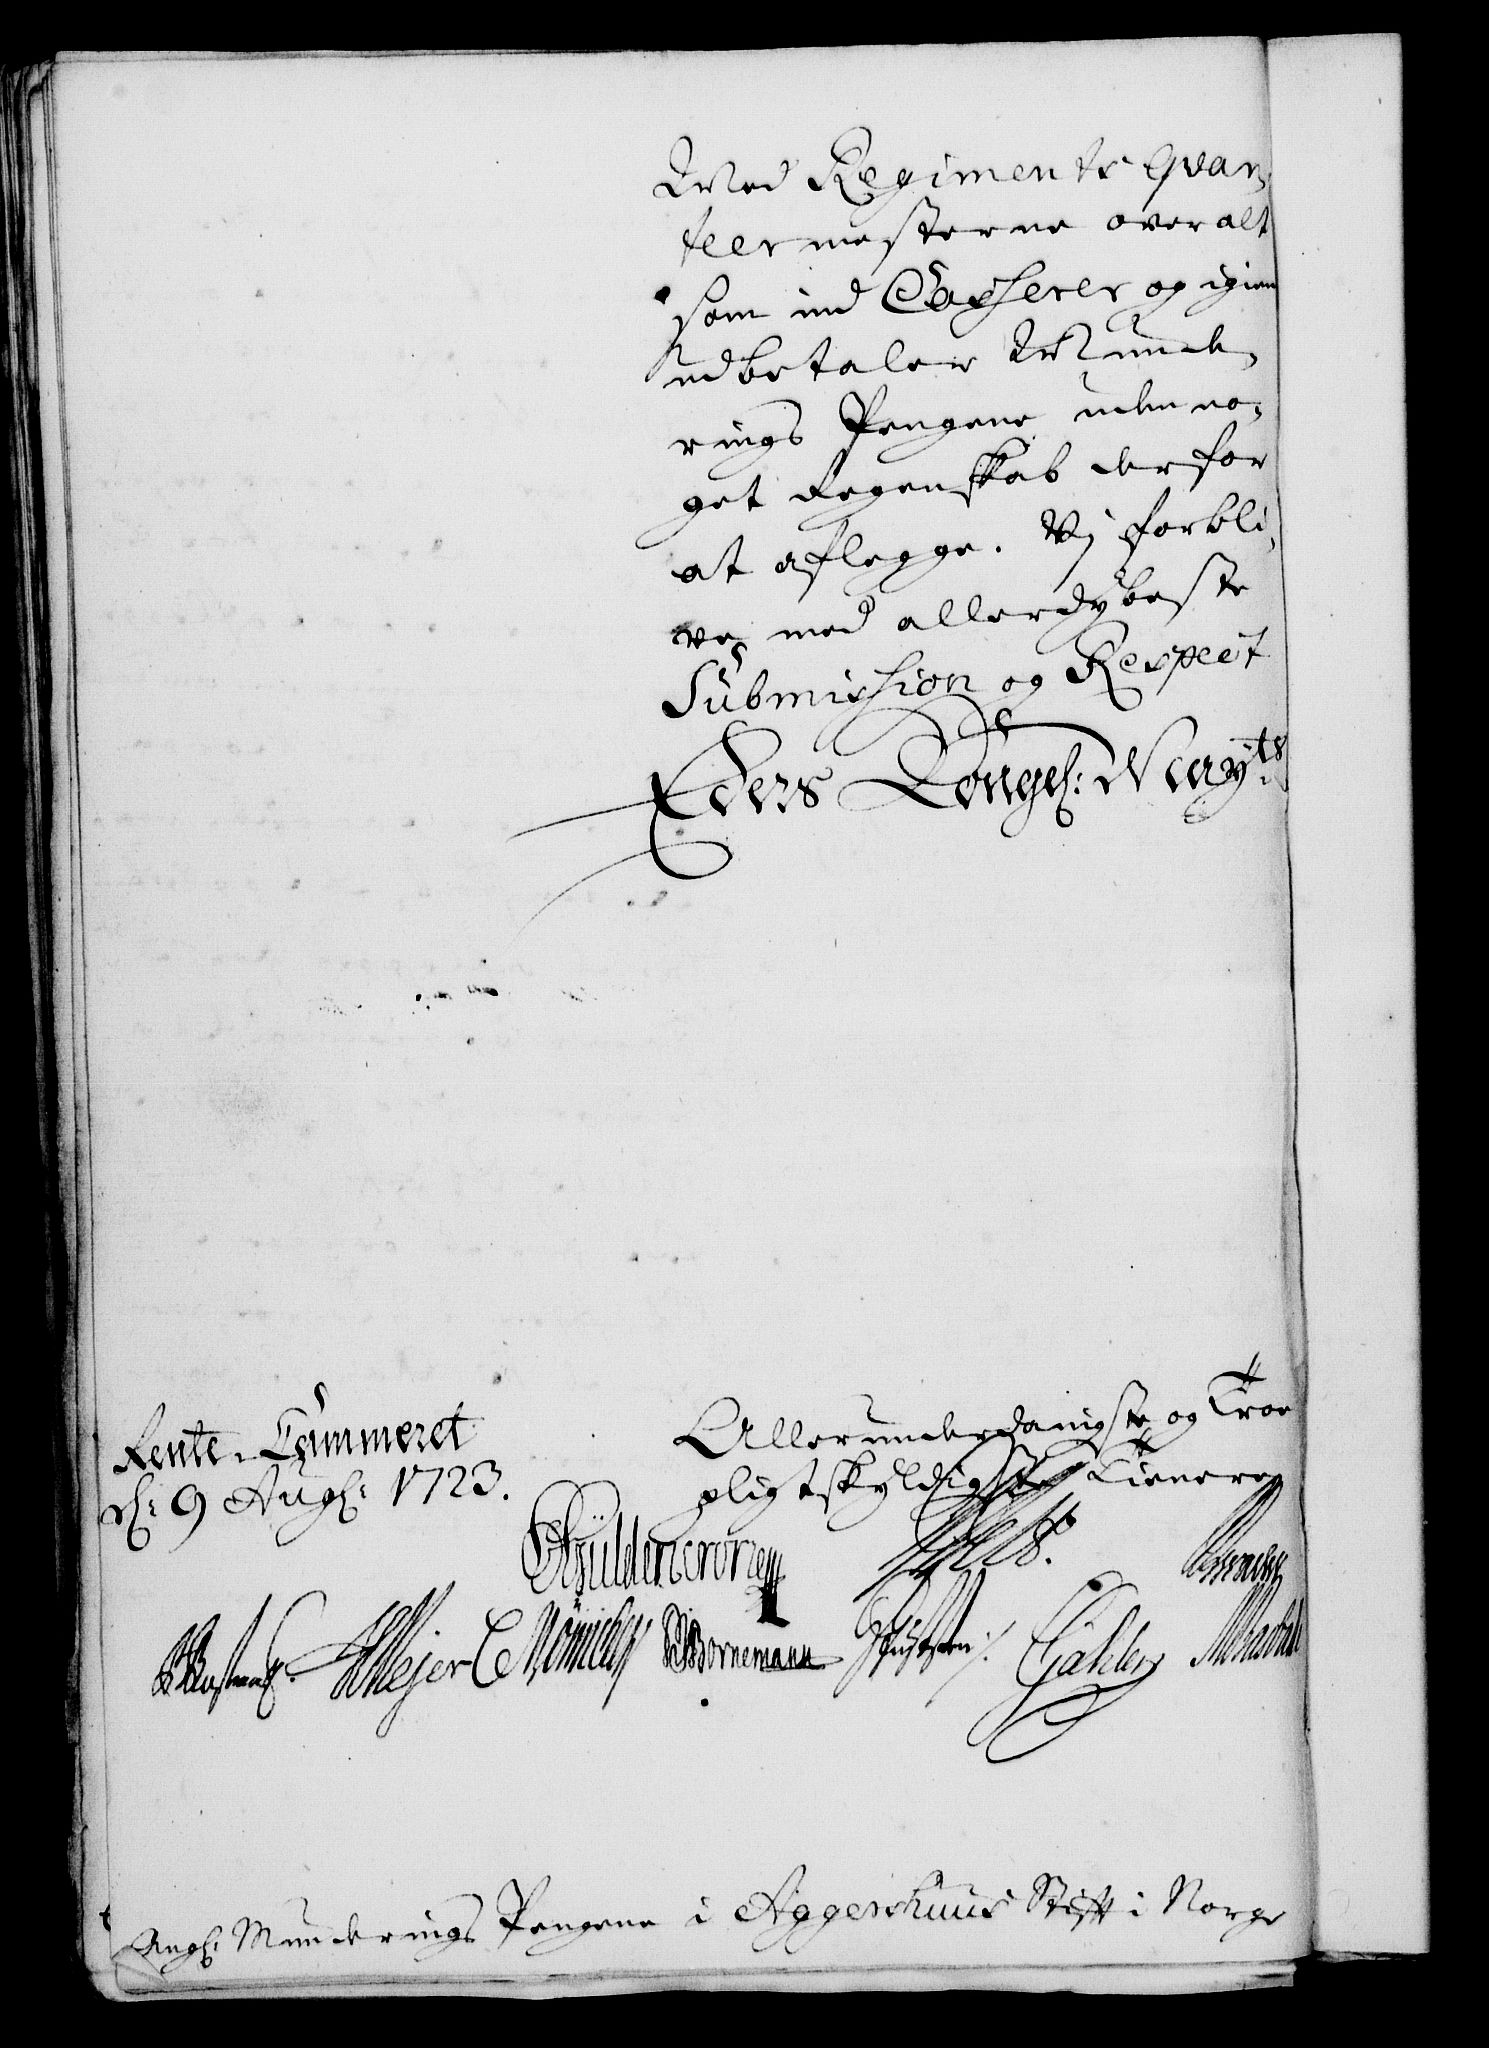 Med Regiments Qvar-
teermesterne overalt
som ind Casserer og igien
udbetaler Munde-
rings Pengene uden no-
get Regenskab derfor
at aflegge. Vj forbli-
ve med allerdybeste
Submission og Respect
Eders Kongel: Mayts
Rente-Cammeret
d: 9 Aug: 1723.
Allerunderdanigste og Troe
pligtskyldigste Tienere
Gÿldencrone
HMejer C Mönichen Bornemann Gähler
Angl: Munderings Pengene i Aggershuus Stift i Norge